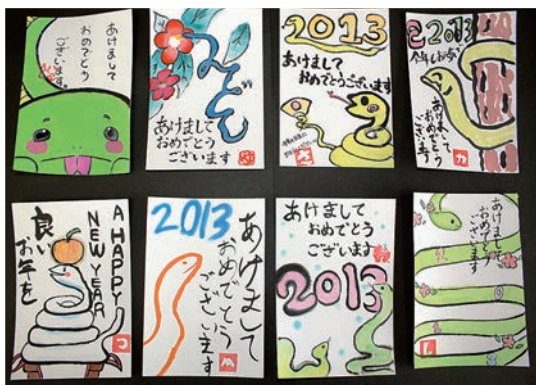 あけまして
おめでとう
ございます。
みどし
あけまして
おめでとう
ございます
2013
あけまして
おめでとうございます
2013
今年もお幸せで
あけまして
おめでとう
ございます
A HAPPY
NEW YEAR
良い
お年を
2013
あけまして
おめでとう
ございます
あけまして
おめでとう
ございます
2013
あけまして
おめでとう
ございます